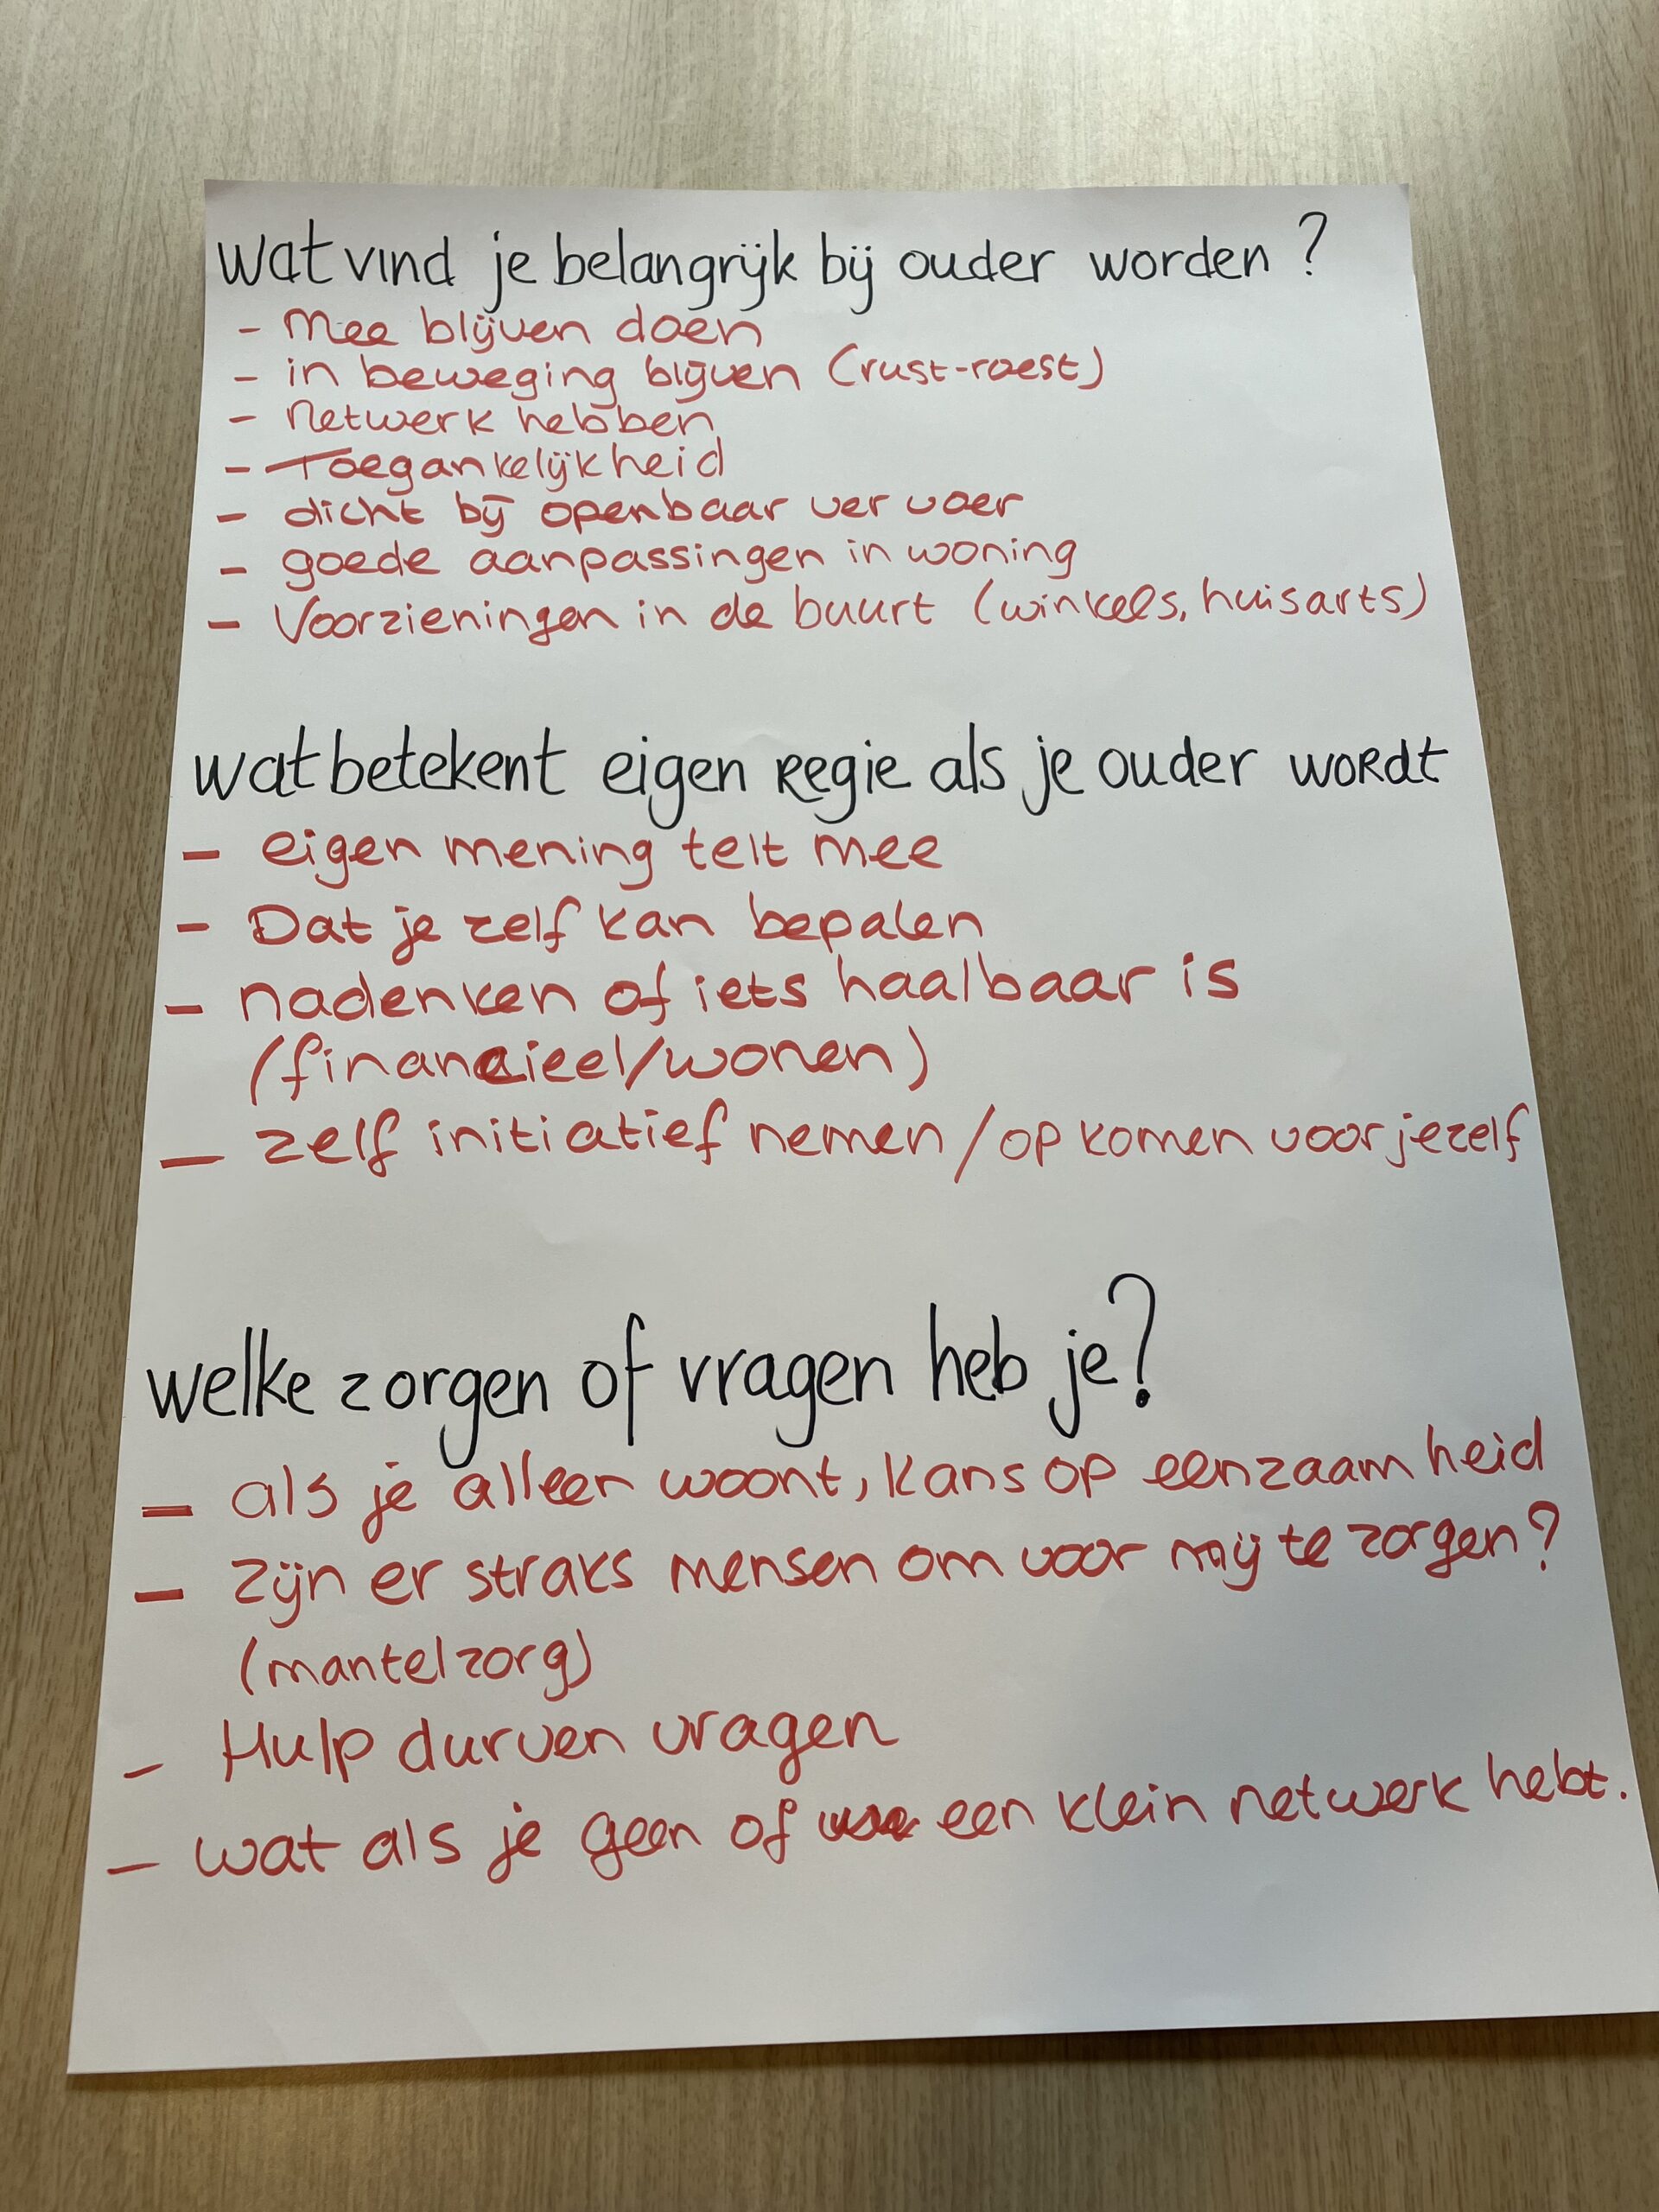 wat vind je belangrijk bij ouder worden?
- Mee blijven doen
- in beweging blijven (rust-roest)
- Netwerk hebben
- Toegankelijkheid
- dicht bij openbaar vervoer
- goede aanpassingen in woning
- Voorzieningen in de buurt (winkels, huisarts)
wat betekent eigen Regie als je ouder wordt
- eigen mening telt mee
- Dat je zelf kan bepalen
- nadenken of iets haalbaar is
(financieel/wonen)
- zelf initiatief nemen / op komen voor jezelf
welke zorgen of vragen heb je?
- als je alleen woont, kans op eenzaamheid
- zijn er straks mensen om voor mij te zorgen?
(mantelzorg)
- Hulp durven vragen
- wat als je geen of een klein netwerk hebt.